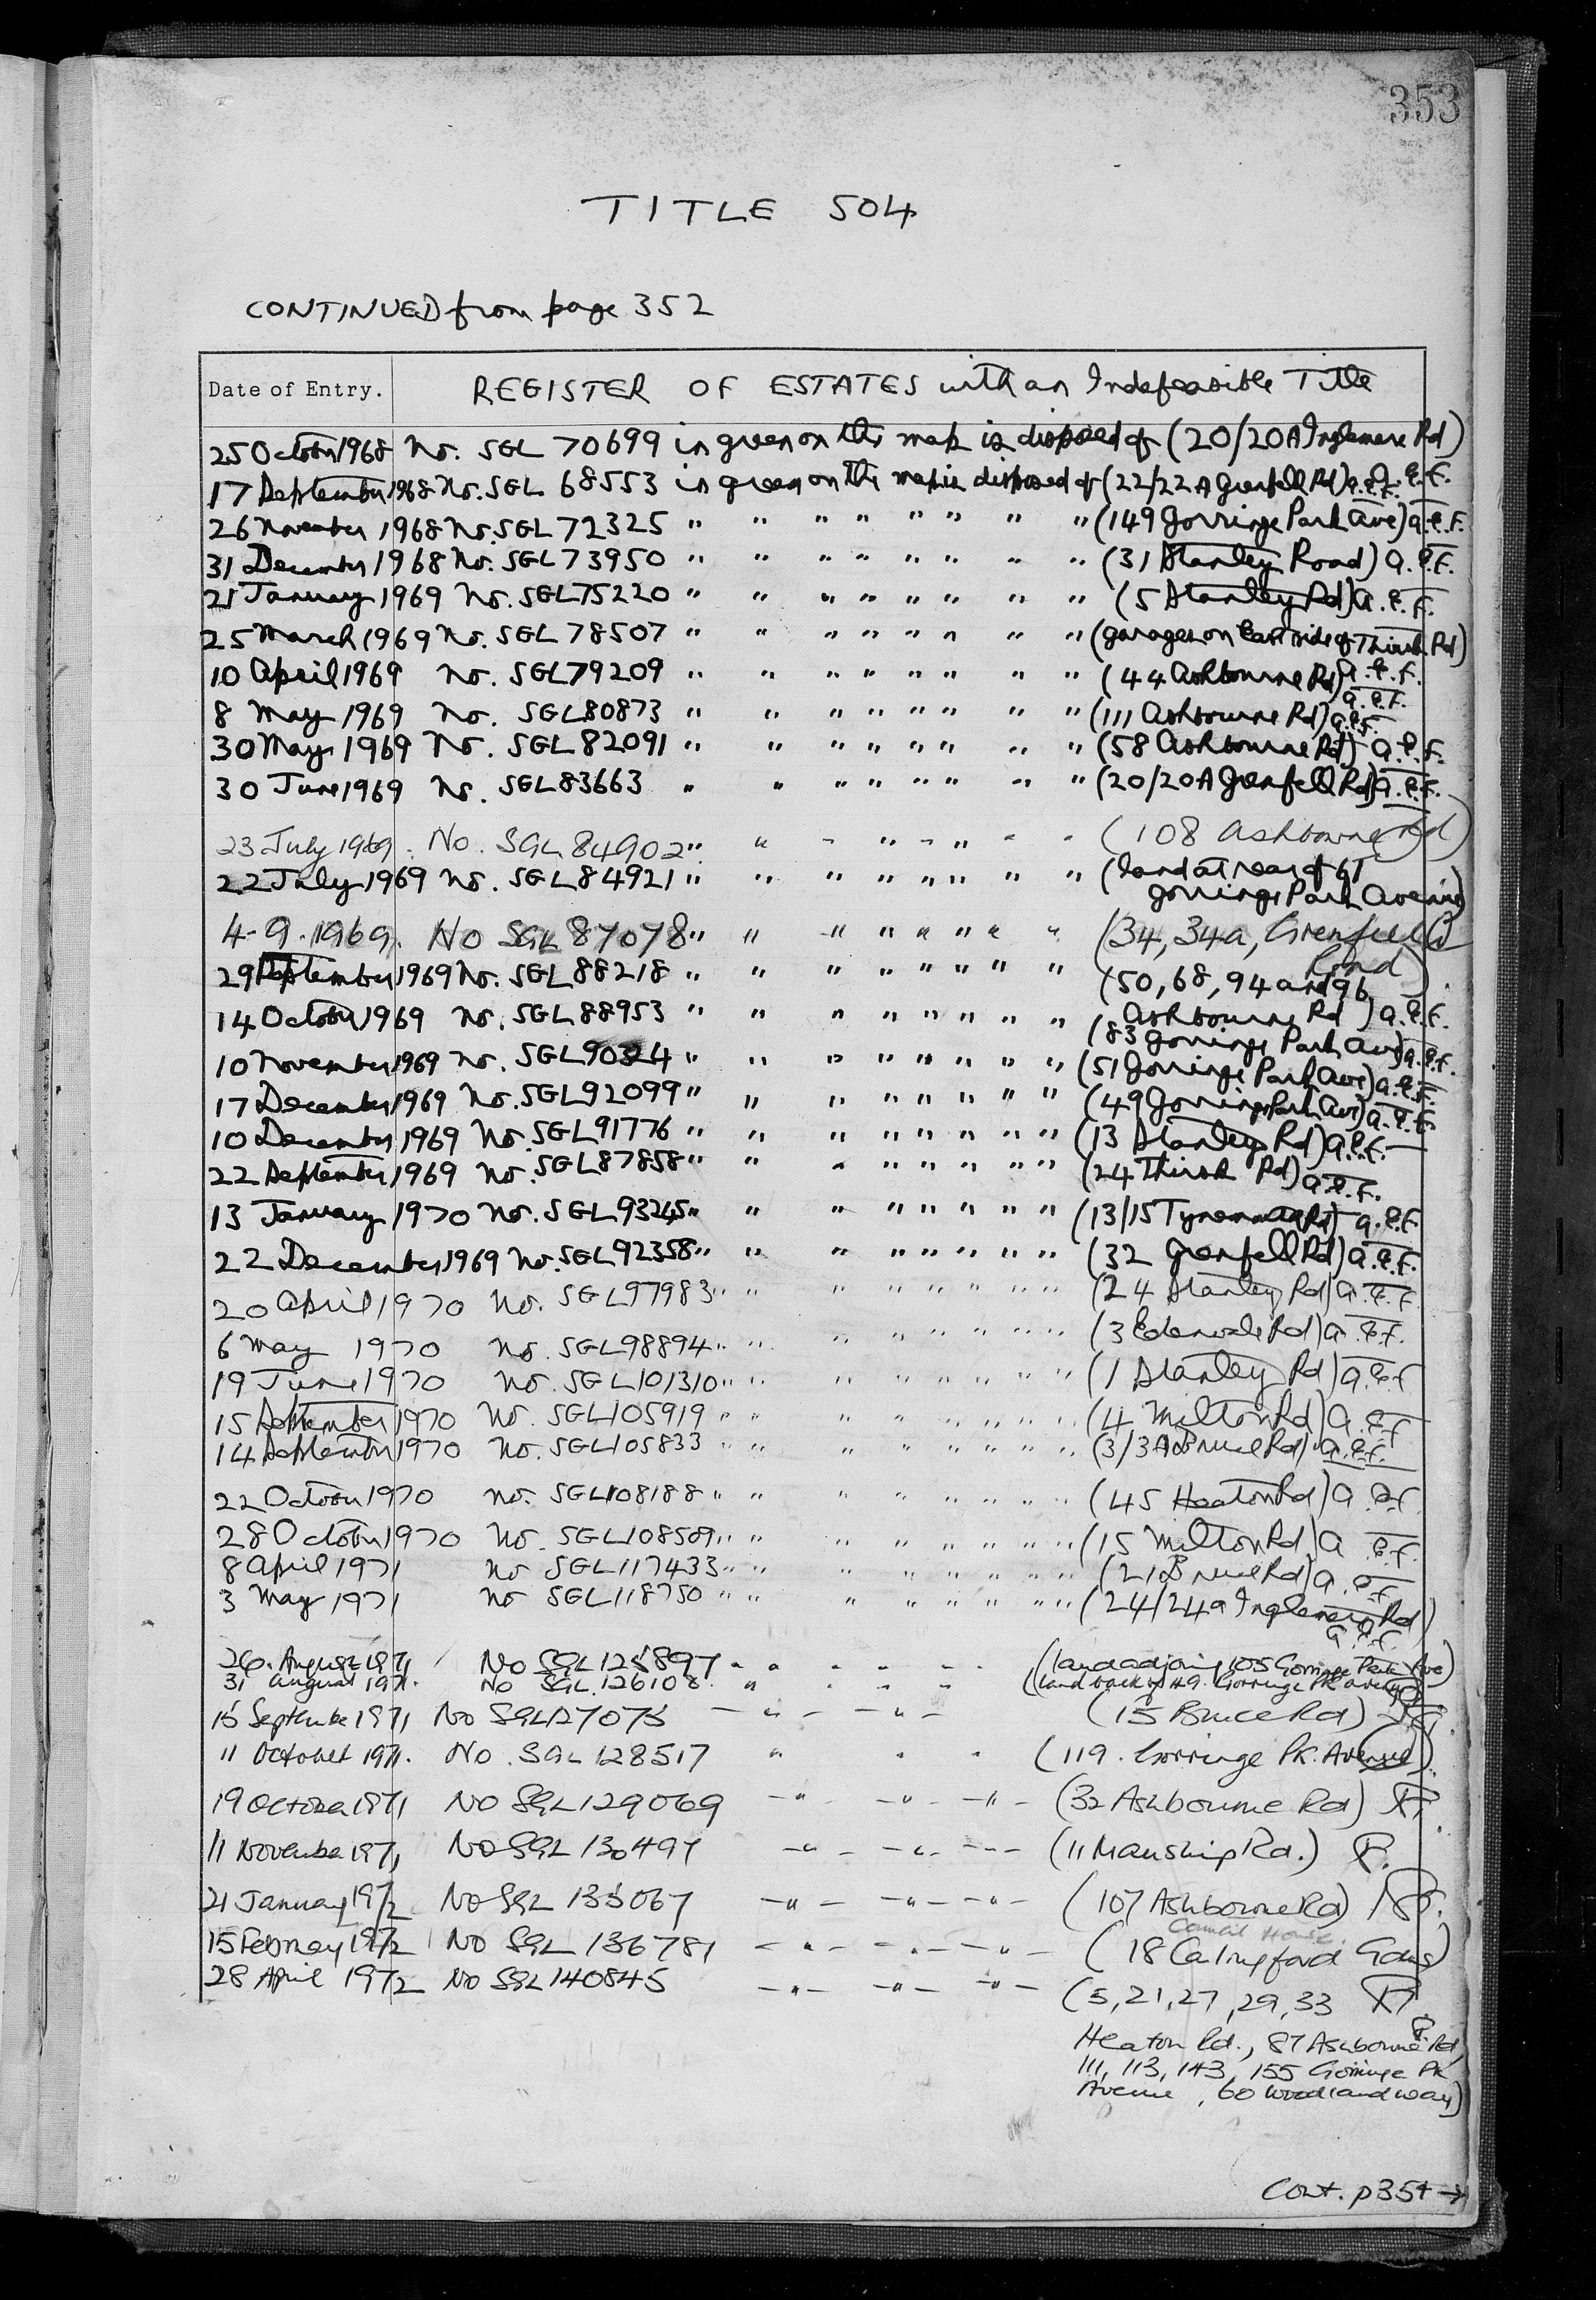 353
TITLE 504
CONTINUED from page 352
Date of Entry. REGISTER OF ESTATES with an Indefeasible Title
25 October 1968 No. SGL 70699 in green on the map is disposed of (20/20A Inglemere Rd)
17 September 1968 No. SGL 68553 in green on the map is disposed of (22/22A Grenfell Rd) a.e.f. a.e.f.
26 November 1968 No. SGL 72325 " " " " " " " " (149 Gorringe Park Ave) a.e.f.
31 December 1968 No. SGL 73950 " " " " " " " " (31 Stanley Road) a.e.f.
21 January 1969 No. SGL 75220 " " " " " " " " (5 Stanley Rd) a.e.f.
25 March 1969 No. SGL 78507 " " " " " " " " (garages on East side of Thirsk Rd)
10 April 1969 No. SGL 79209 " " " " " " " " (44 Ashbourne Rd) a.e.f.
a.e.f.
8 May 1969 No. SGL 80873 " " " " " " " " (111 Ashbourne Rd) a.e.f.
30 May 1969 No. SGL 82091 " " " " " " " " (58 Ashbourne Rd) a.e.f.
30 June 1969 No. SGL 83663 " " " " " " " " (20/20A Grenfell Rd) a.e.f.
23 July 1969. No. SGL 84902 " " - " - " - - (108 Ashbourne Rd)
22 July 1969 No. SGL 84921 " " " " " " " " (land at rear of 61
Gorringe Park Avenue)
4-9-1969. No SGL 87078 " " " " " " " (34, 34a, Grenfell
Road)
29 September 1969 No. SGL 88218 " " " " " " " " (50, 68, 94 and 96
Ashbourne Rd) a.e.f.
14 October 1969 No. SGL 88953 " " " " " " " " (83 Gorringe Park Ave) a.e.f.
10 November 1969 No. SGL 90324 " " " " " " " " (51 Gorringe Park Ave) a.e.f.
17 December 1969 No. SGL 92099 " " " " " " " " (49 Gorringe Park Ave) a.e.f.
10 December 1969 No. SGL 91776 " " " " " " " " (13 Stanley Rd) a.e.f.
22 September 1969 No. SGL 87858 " " " " " " " " (24 Thirsk Rd) a.e.f.
13 January 1970 No. SGL 93245 " " " " " " " " (13/15 Tynemouth Rd) a.e.f.
22 December 1969 No. SGL 92358 " " " " " " " " (32 Grenfell Rd) a.e.f.
20 April 1970 No. SGL 97983 " " " " " " " " (24 Stanley Rd) a.e.f.
6 May 1970 No. SGL 98894 " " " " " " " " (3 Edenvale Rd) a.e.f.
19 June 1970 No. SGL 101310 " " " " " " " " (1 Stanley Rd) a.e.f
15 September 1970 No. SGL 105919 " " " " " " " " (4 Milton Rd) a.e.f
14 September 1970 No. SGL 105833 " " " " " " " " (3/3A Bruce Rd) a.e.f.
22 October 1970 No. SGL 108188 " " " " " " " " (45 Heaton Rd) a.e.f
28 October 1970 No. SGL 108509 " " " " " " " " (15 Milton Rd) a.e.f.
8 April 1971 No SGL 117433 " " " " " " " " (21 Bruce Rd) a.e.f
3 May 1971 No SGL 118750 " " " " " " " " (24/24a Inglemere Rd)
a.e.f.
26. August 1971 No SGL 125897 " " " " " (land adjoing 105 Gorringe Park Ave)
31 August 1971. No SGL 126108 " " " " (land back of 49 Gorringe PK avenue)
15 September 1971 No SGL 127075 - " - - " - (15 Bruce Rd)
11 October 1971. No. SGL 128517 " " " (119. Gorringe Pk. Avenue)
19 October 1971 No SGL 129069 - " - - " - - " - (32 Ashbourne Rd)
11 November 1971 No SGL 130497 - " - - " - - - - (11 Manship Rd.)
21 January 1972 No SGL 135067 - " - - " - - " - (107 Ashbourne Rd)
Council House.
15 February 1972 No SGL 136781 - " - - " - - " - (18 Calingford Gdns)
28 April 1972 No SGL 140845 - " - - " - - " - (5, 21, 27, 29, 33
Heaton Rd., 87 Ashbourne Rd,
111, 113, 143, 155 Gorringe Pk
Avenue, 60 Woodland Way)
Cont. p354 →